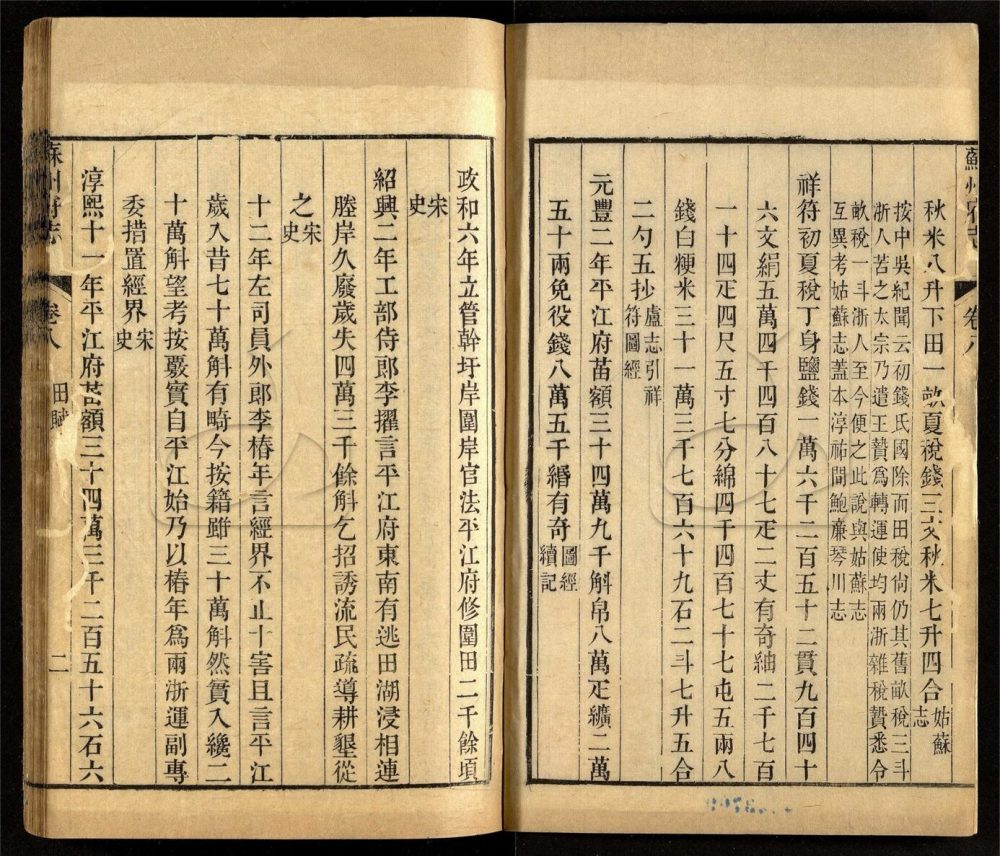 蘇州府志 卷八
秋米八升下田一畝夏稅錢三文秋米七升四合姑蘇志
按中吳紀聞云初錢氏國除而田稅尙仍其舊畝稅三斗
浙人苦之太宗乃遣王贄爲轉運使均兩浙雜稅贄悉令
畝稅一斗浙人至今便之此說與姑蘇志
互異考姑蘇志蓋本淳祐間鮑廉琴川志
祥符初夏稅丁身鹽錢一萬六千二百五十二貫九百四十
六文絹五萬四千四百八十七疋二丈有奇紬二千七百
一十四疋四尺五寸七分綿四千四百七十七屯五兩八
錢白粳米三十一萬三千七百六十九石二斗七升五合
二勺五抄盧志引祥符圖經
元豐二年平江府苗額三十四萬九千斛帛八萬疋纊二萬
五十兩免役錢八萬五千緡有奇圖經續記
政和六年立管幹圩岸圍岸官法平江府修圍田二千餘頃
宋史
紹興二年工部侍郎李擢言平江府東南有逃田湖浸相連
塍岸久廢歲失四萬三千餘斛乞招誘流民疏導耕墾從
之宋史
十二年左司員外郎李椿年言經界不止十害且言平江
歲入昔七十萬斛有畸今按籍雖三十萬斛然實入纔二
十萬斛望考按覈實自平江始乃以椿年爲兩浙運副專
委措置經界宋史
淳熙十一年平江府苗額三十四萬三千二百五十六石六
蘇州府志 卷八 田賦 二